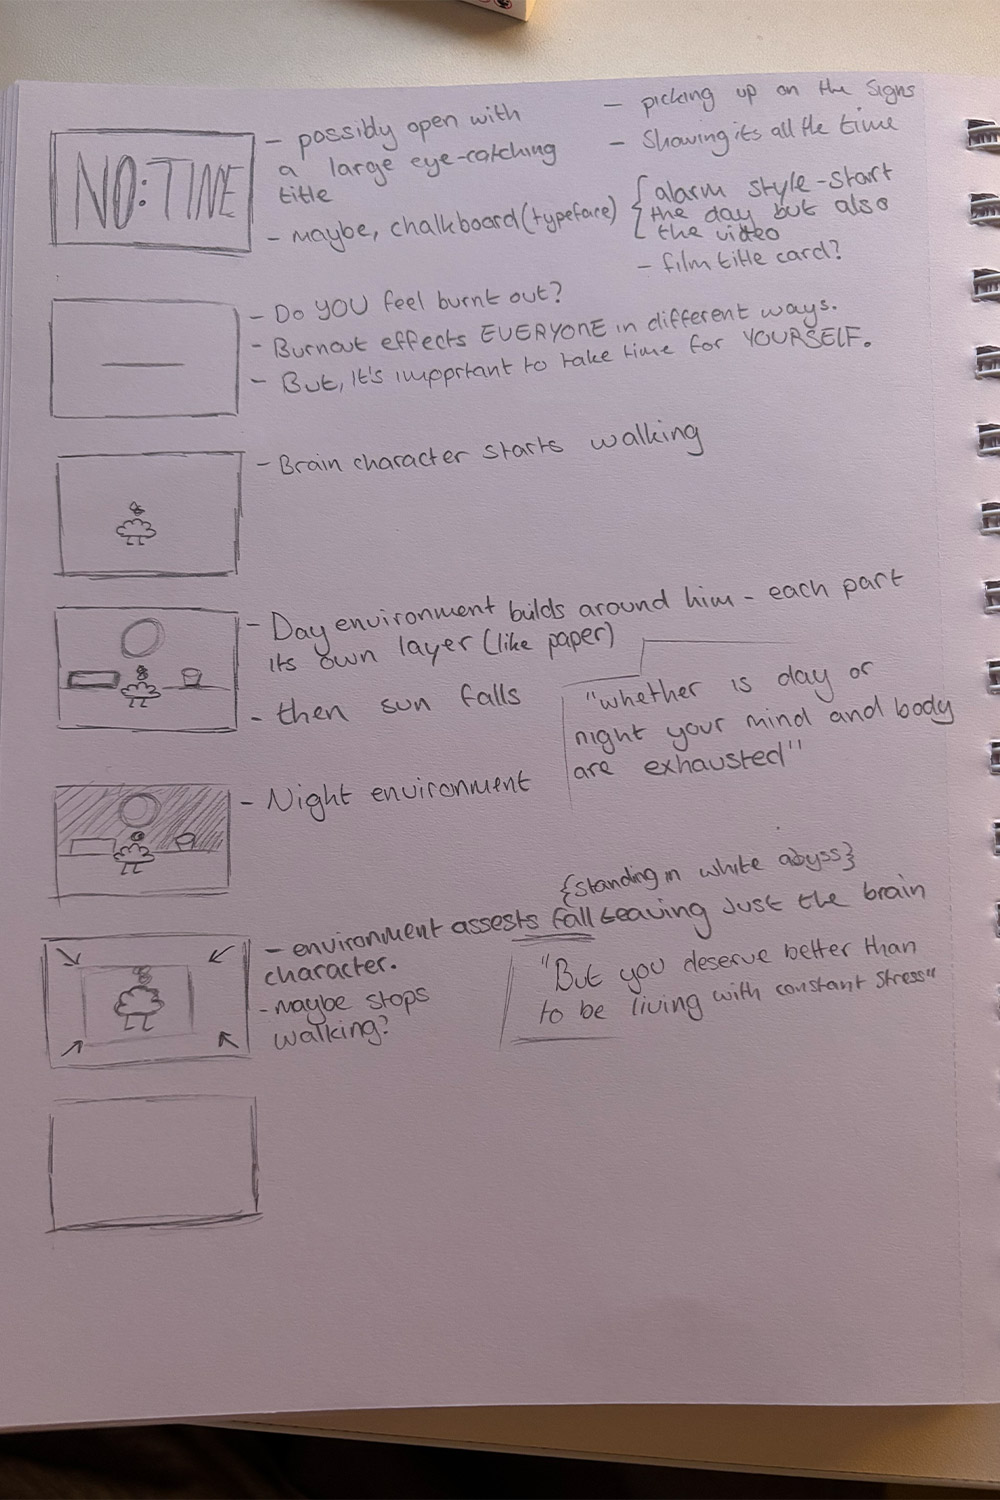 NO:TIME
- possibly open with
a large eye-catching
title
- maybe, chalkboard (typeface)
- picking up on the signs
- showing its all the time
{alarm style - start
the day but also
the video
- film title card?
- Do YOU feel burnt out?
- Burnout effects EVERYONE in different ways.
- But, it's important to take time for YOURSELF.
- Brain character starts walking
- Day environment builds around him - each part
its own layer (like paper)
- then sun falls
"whether is day or
night your mind and body
are exhausted"
- Night environment
{standing in white abyss}
- environment assests fall leaving just the brain
character.
- maybe stops
walking?
"But you deserve better than
to be living with constant stress"